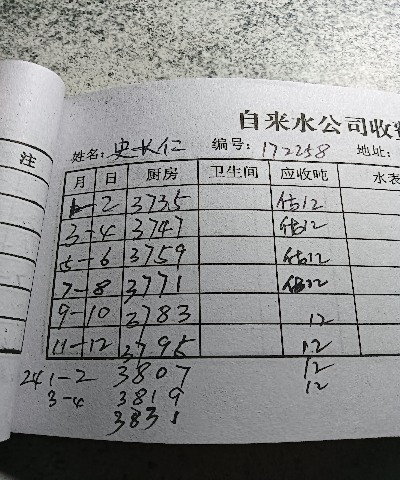 自来水公司收
注
姓名: 史长仁 编号: 172258 地址:
月 日 厨房 卫生间 应收吨 水表
1-2 3735 估12
3-4 3747 估12
5-6 3759 估12
7-8 3771 估12
9-10 3783 12
11-12 3795 12
241-2 3807 12
3-4 3819 12
3831